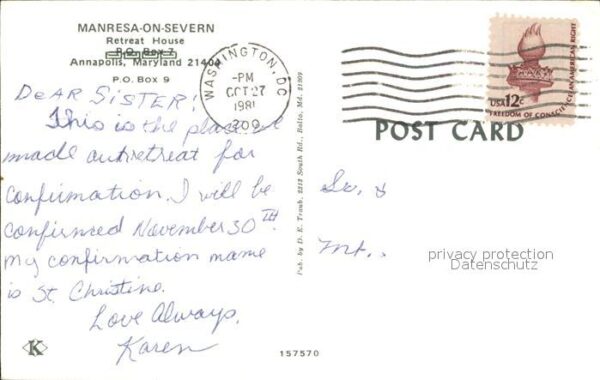 MANRESA-ON-SEVERN
Retreat House
P.O. Box 7
Annapolis, Maryland 21404
P.O. Box 9
DEAR SISTER!
This is the place we
made our retreat for
confirmation. I will be
confirmed November 30TH.
my confirmation name
is St. Christine.
Love Always,
Karen
K
WASHINGTON, DC
-PM
OCT 27
1981
209
Pub. by D. E. Traub, 2212 South Rd., Balto. Md. 21209
157570
USA 12c
FREEDOM OF CONSCIENCE AN AMERICAN RIGHT
POST CARD
Sr.
Mt.
privacy protection
Datenschutz